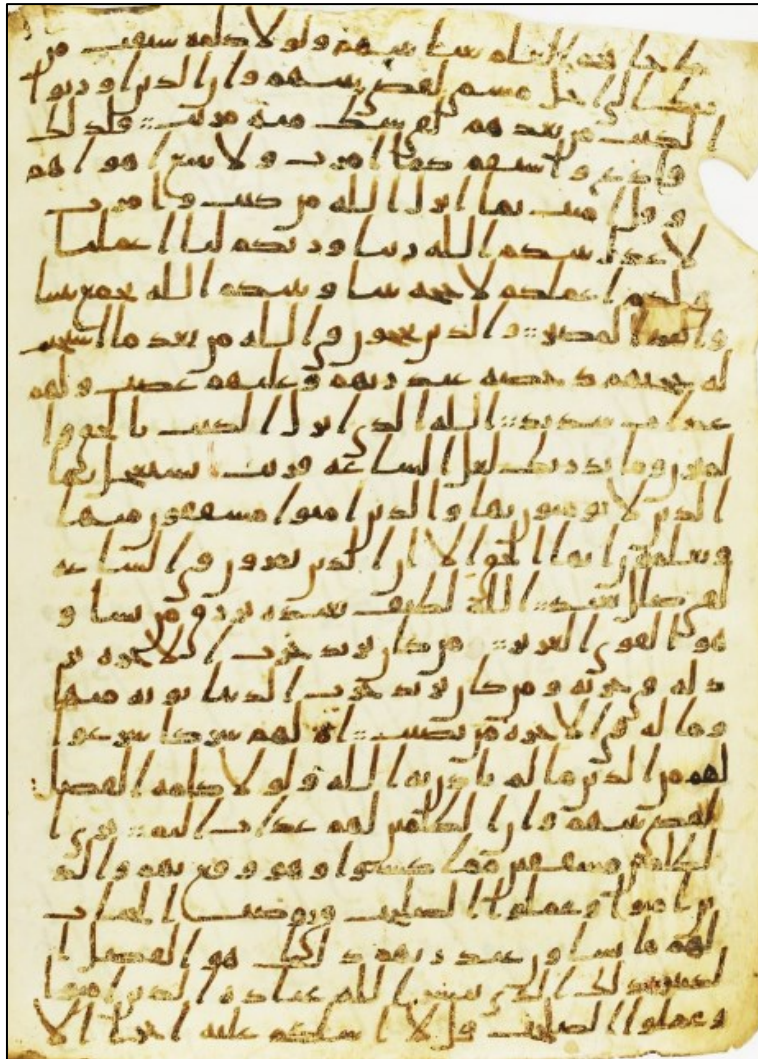 ما جاهم العلم بغيا بينهم ولولا كلمه سبقت من
ربك الى اجل مسمى لقضى بينهم وان الذين اورثوا
الكتب من بعدهم لفى شك منه مريب فلذلك
فادع واستقم كما امرت ولا تتبع اهواهم
وقل امنت بما انزل الله من كتب وامرت
لاعدل بينكم الله ربنا وربكم لنا اعملنا
ولكم اعملكم لا حجه بيننا وبينكم الله يجمع بيننا
واليه المصير والذين يحجون فى الله من بعد ما استجيب
له حجتهم دحضه عند ربهم وعليهم غضب ولهم
عذاب شديد الله الذى انزل الكتب بالحق وا
لميزن وما يدريك لعل الساعه قريب يستعجل بها
الذين لا يومنون بها والذين امنوا مشفقون منها
ويعلمون انها الحق الا ان الذين يمرون فى الساعه
لفى ضلل بعيد الله لطيف بعبده يرزق من يشا و
هو القوى العزيز من كان يريد حرث الاخره نز
د له فى حرثه ومن كان يريد حرث الدنيا نوته منها
وما له فى الاخره من نصيب ام لهم شركا شرعوا
لهم من الدين ما لم ياذن به الله ولولا كلمه الفصل
لقضى بينهم وان الظلمين لهم عذاب اليم ترى ا
لظلمين مشفقين مما كسبوا وهو وقع بهم والذ
ين امنوا وعملوا الصلحت فى روضت الجنات
لهم ما يشاون عند ربهم ذلك هو الفضل ا
لكبير ذلك الذى يبشر الله عباده الذين امنوا
وعملوا الصلحت قل لا اسلكم عليه اجرا الا